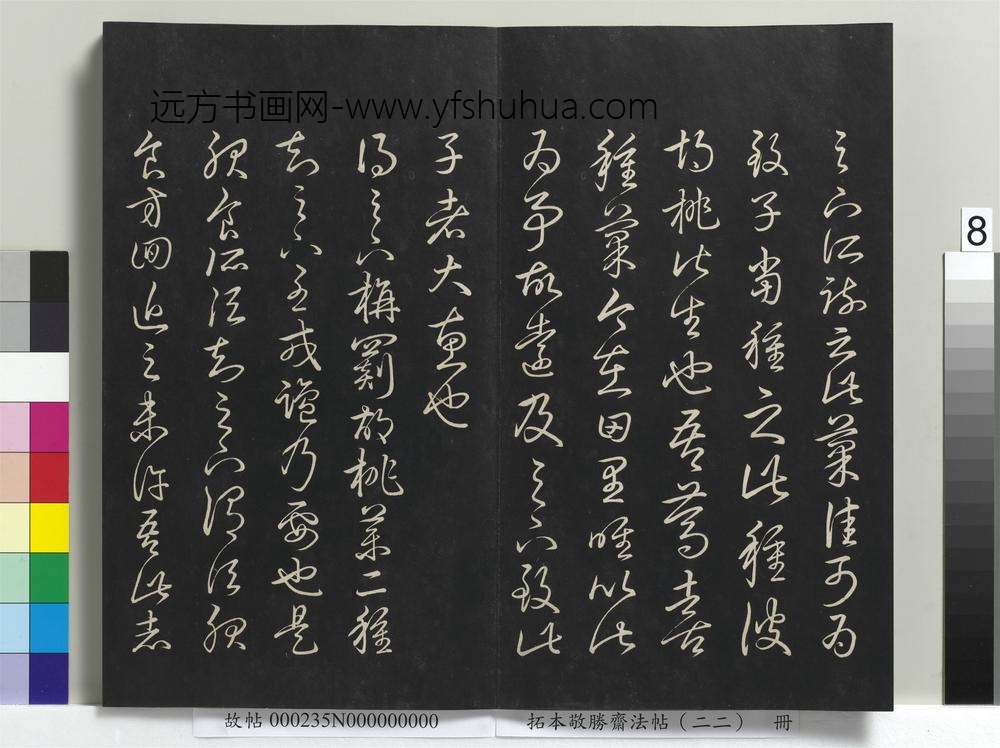 远方书画网-www.yfshuhua.com
足下所疏云此菓佳可為
致子當種之此種彼
胡桃皆生也吾篤喜
種菓今在田里唯以此
為事故遠及足下致此
子者大惠也
得足下旃罽胡桃藥二種
知足下至戎鹽乃要也是
服食所須知足下謂須服
食方回近之未許吾此志
8
故帖 000235N000000000
拓本敬勝齋法帖（二二） 冊